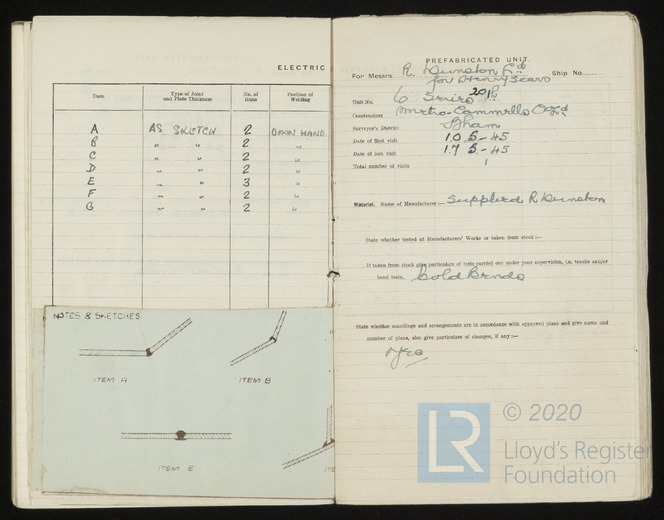 ELECTRIC
Item
Type of Joint and Plate Thickness
No. of Runs
Position of Welding
A AS SKETCH 2 DOWN HAND
B " " 2 "
C " " 2 "
D " " 2 "
E " " 3 "
F " " 2 "
G " " 2 "
NOTES & SKETCHES
ITEM A
ITEM B
ITEM E
PREFABRICATED UNIT.
For Messrs. R. Dunston Ltd Ship No.
for Henry Scarr
Unit No. 6
Constructors Metro-Cammells
Surveyor's District B'ham
Date of first visit 10 5 - 45
Date of last visit 17 5 - 45
Total number of visits 1
Material. Name of Manufacturer:— Supplied R Dunston
State whether tested at Manufacturers' Works or taken from stock:—
If taken from stock give particulars of tests carried out under your supervision, i.e. tensile and/or
bend tests. Cold Bends
State whether scantlings and arrangements are in accordance with approved plans and give name and
number of plans, also give particulars of changes, if any:—
Yes
LR
© 2020
Lloyd's Register
Foundation